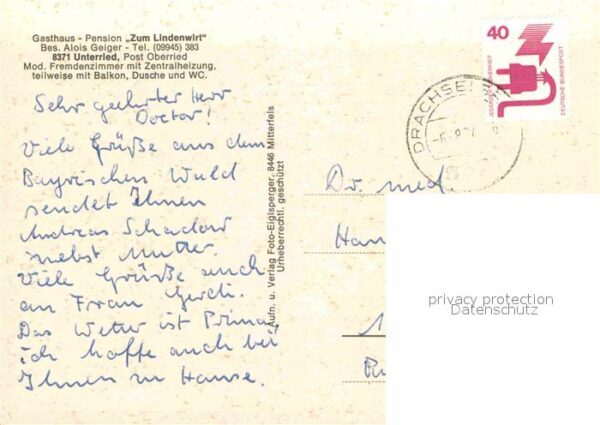 Gasthaus - Pension „Zum Lindenwirt"
Bes. Alois Geiger - Tel. (09945) 383
8371 Unterried, Post Oberried
Mod. Fremdenzimmer mit Zentralheizung,
teilweise mit Balkon, Dusche und WC.
Sehr geehrter Herr
Doctor!
Viele Grüße aus dem
Bayrischen Wald
sendet Ihnen
Andreas Schadow
nebst Mutter.
Viele Grüße auch
an Frau Gerdi.
Das Wetter ist Prima,
ich hoffe auch bei
Ihnen zu Hause.
Aufn. u. Verlag Foto-Eiglsperger, 8446 Mitterfels
Urheberrechtl. geschützt
40
JEDERZEIT SICHERHEIT
DEUTSCHE BUNDESPOST
DRACHSE
Dr. med
Han
1
privacy protection
Datenschutz